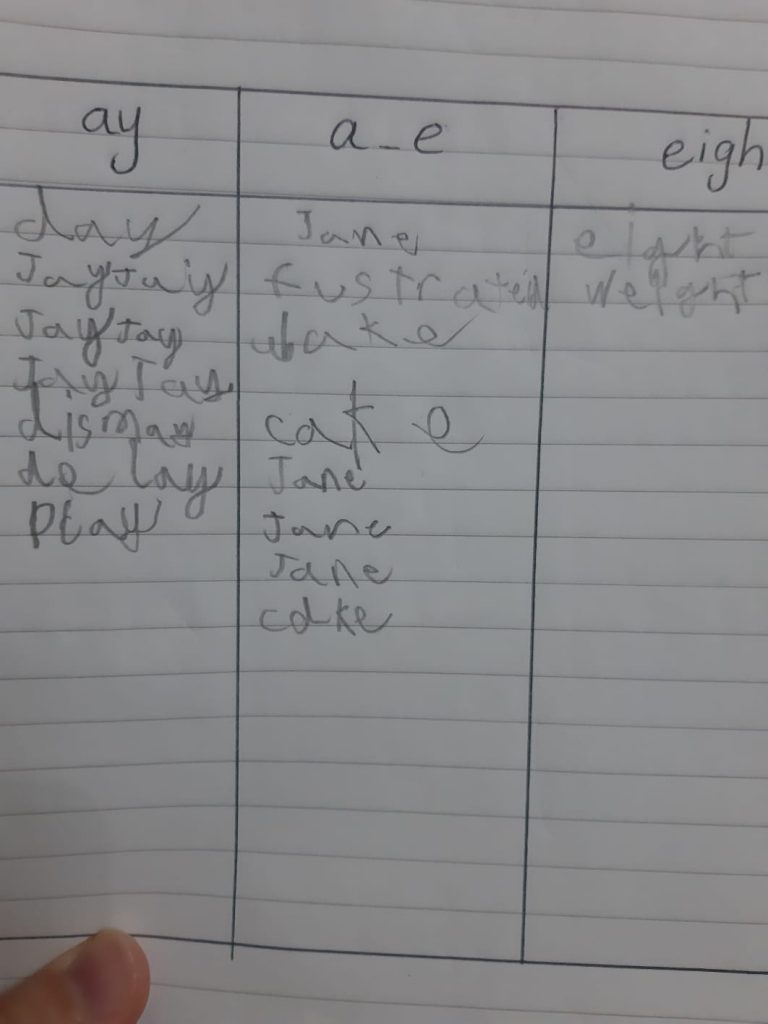 ay a_e eigh
day Jane eight
JayJay fustrated weight
JayJay wake
JayJay
dismay cake
delay Jane
play Jane
Jane
cake